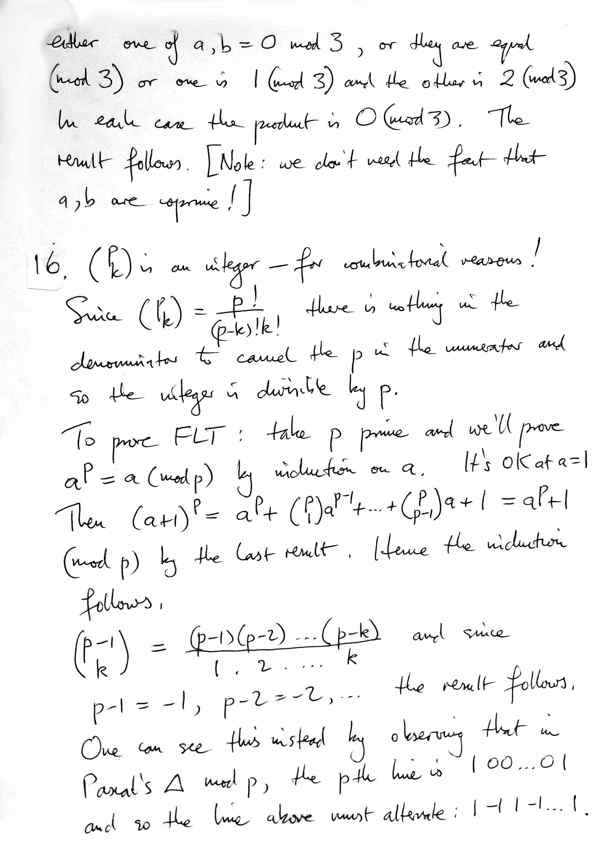 either one of a, b = 0 mod 3, or they are equal
(mod 3) or one is 1 (mod 3) and the other is 2 (mod 3)
In each case the product is 0 (mod 3). The
result follows. [Note: we don't need the fact that
a, b are coprime!]
16. (p k) is an integer — for combinatorial reasons!
Since (p k) = p! / (p-k)! k! there is nothing in the
denominator to cancel the p in the numerator and
so the integer is divisible by p.
To prove FLT: take p prime and we'll prove
a^p = a (mod p) by induction on a. It's OK at a=1
Then (a+1)^p = a^p + (p 1)a^{p-1} + ... + (p p-1)a + 1 = a^p + 1
(mod p) by the last result. Hence the induction
follows.
(p-1 k) = (p-1)(p-2) ... (p-k) / 1 . 2 . ... k and since
p-1 = -1, p-2 = -2, ... the result follows.
One can see this instead by observing that in
Pascal's Δ mod p, the pth line is 1 0 0 ... 0 1
and so the line above must alternate: 1 -1 1 -1 ... 1.